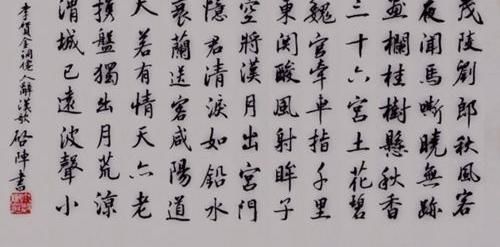 茂陵劉郎秋風客
夜聞馬嘶曉無跡
畫欄桂樹懸秋香
三十六宮土花碧
魏官牽車指千里
東関酸風射眸子
空將漢月出宮門
憶君清淚如鉛水
衰蘭送客咸陽道
天若有情天亦老
擕盤獨出月荒涼
渭城已遠波聲小
李賀金銅僊人辭漢歌 啓陣書